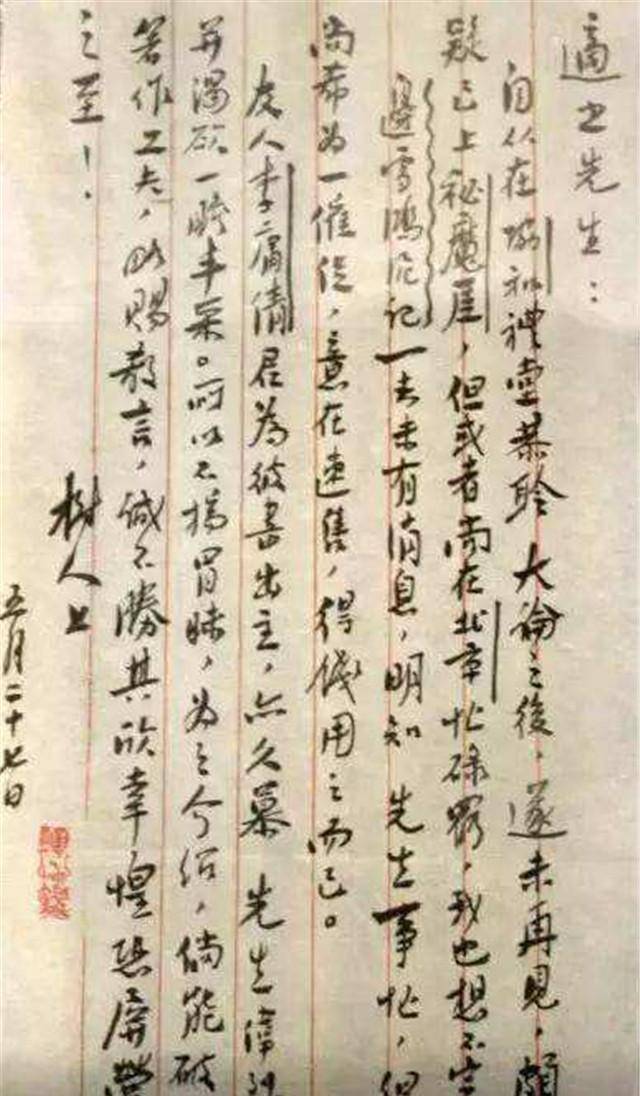 適之先生：
自从在協和禮堂恭聆 大論之後，遂未再見，頗
疑已上祕魔厓，但或者尚在北京忙碌罷，我也想不定
邊雪鴻泥記一去未有消息，明知 先生事忙，但
尚希为一催促，意在速售，得錢用之而已。
友人李庸倩君為彼書出主，亦久慕 先生偉烈
并渴欲一瞻丰采。所以不揣冒昧，为之介紹，倘能破
著作工夫，略賜教言，誠不勝其欣幸惶恐屏營
之至！
樹人上
五月二十七日